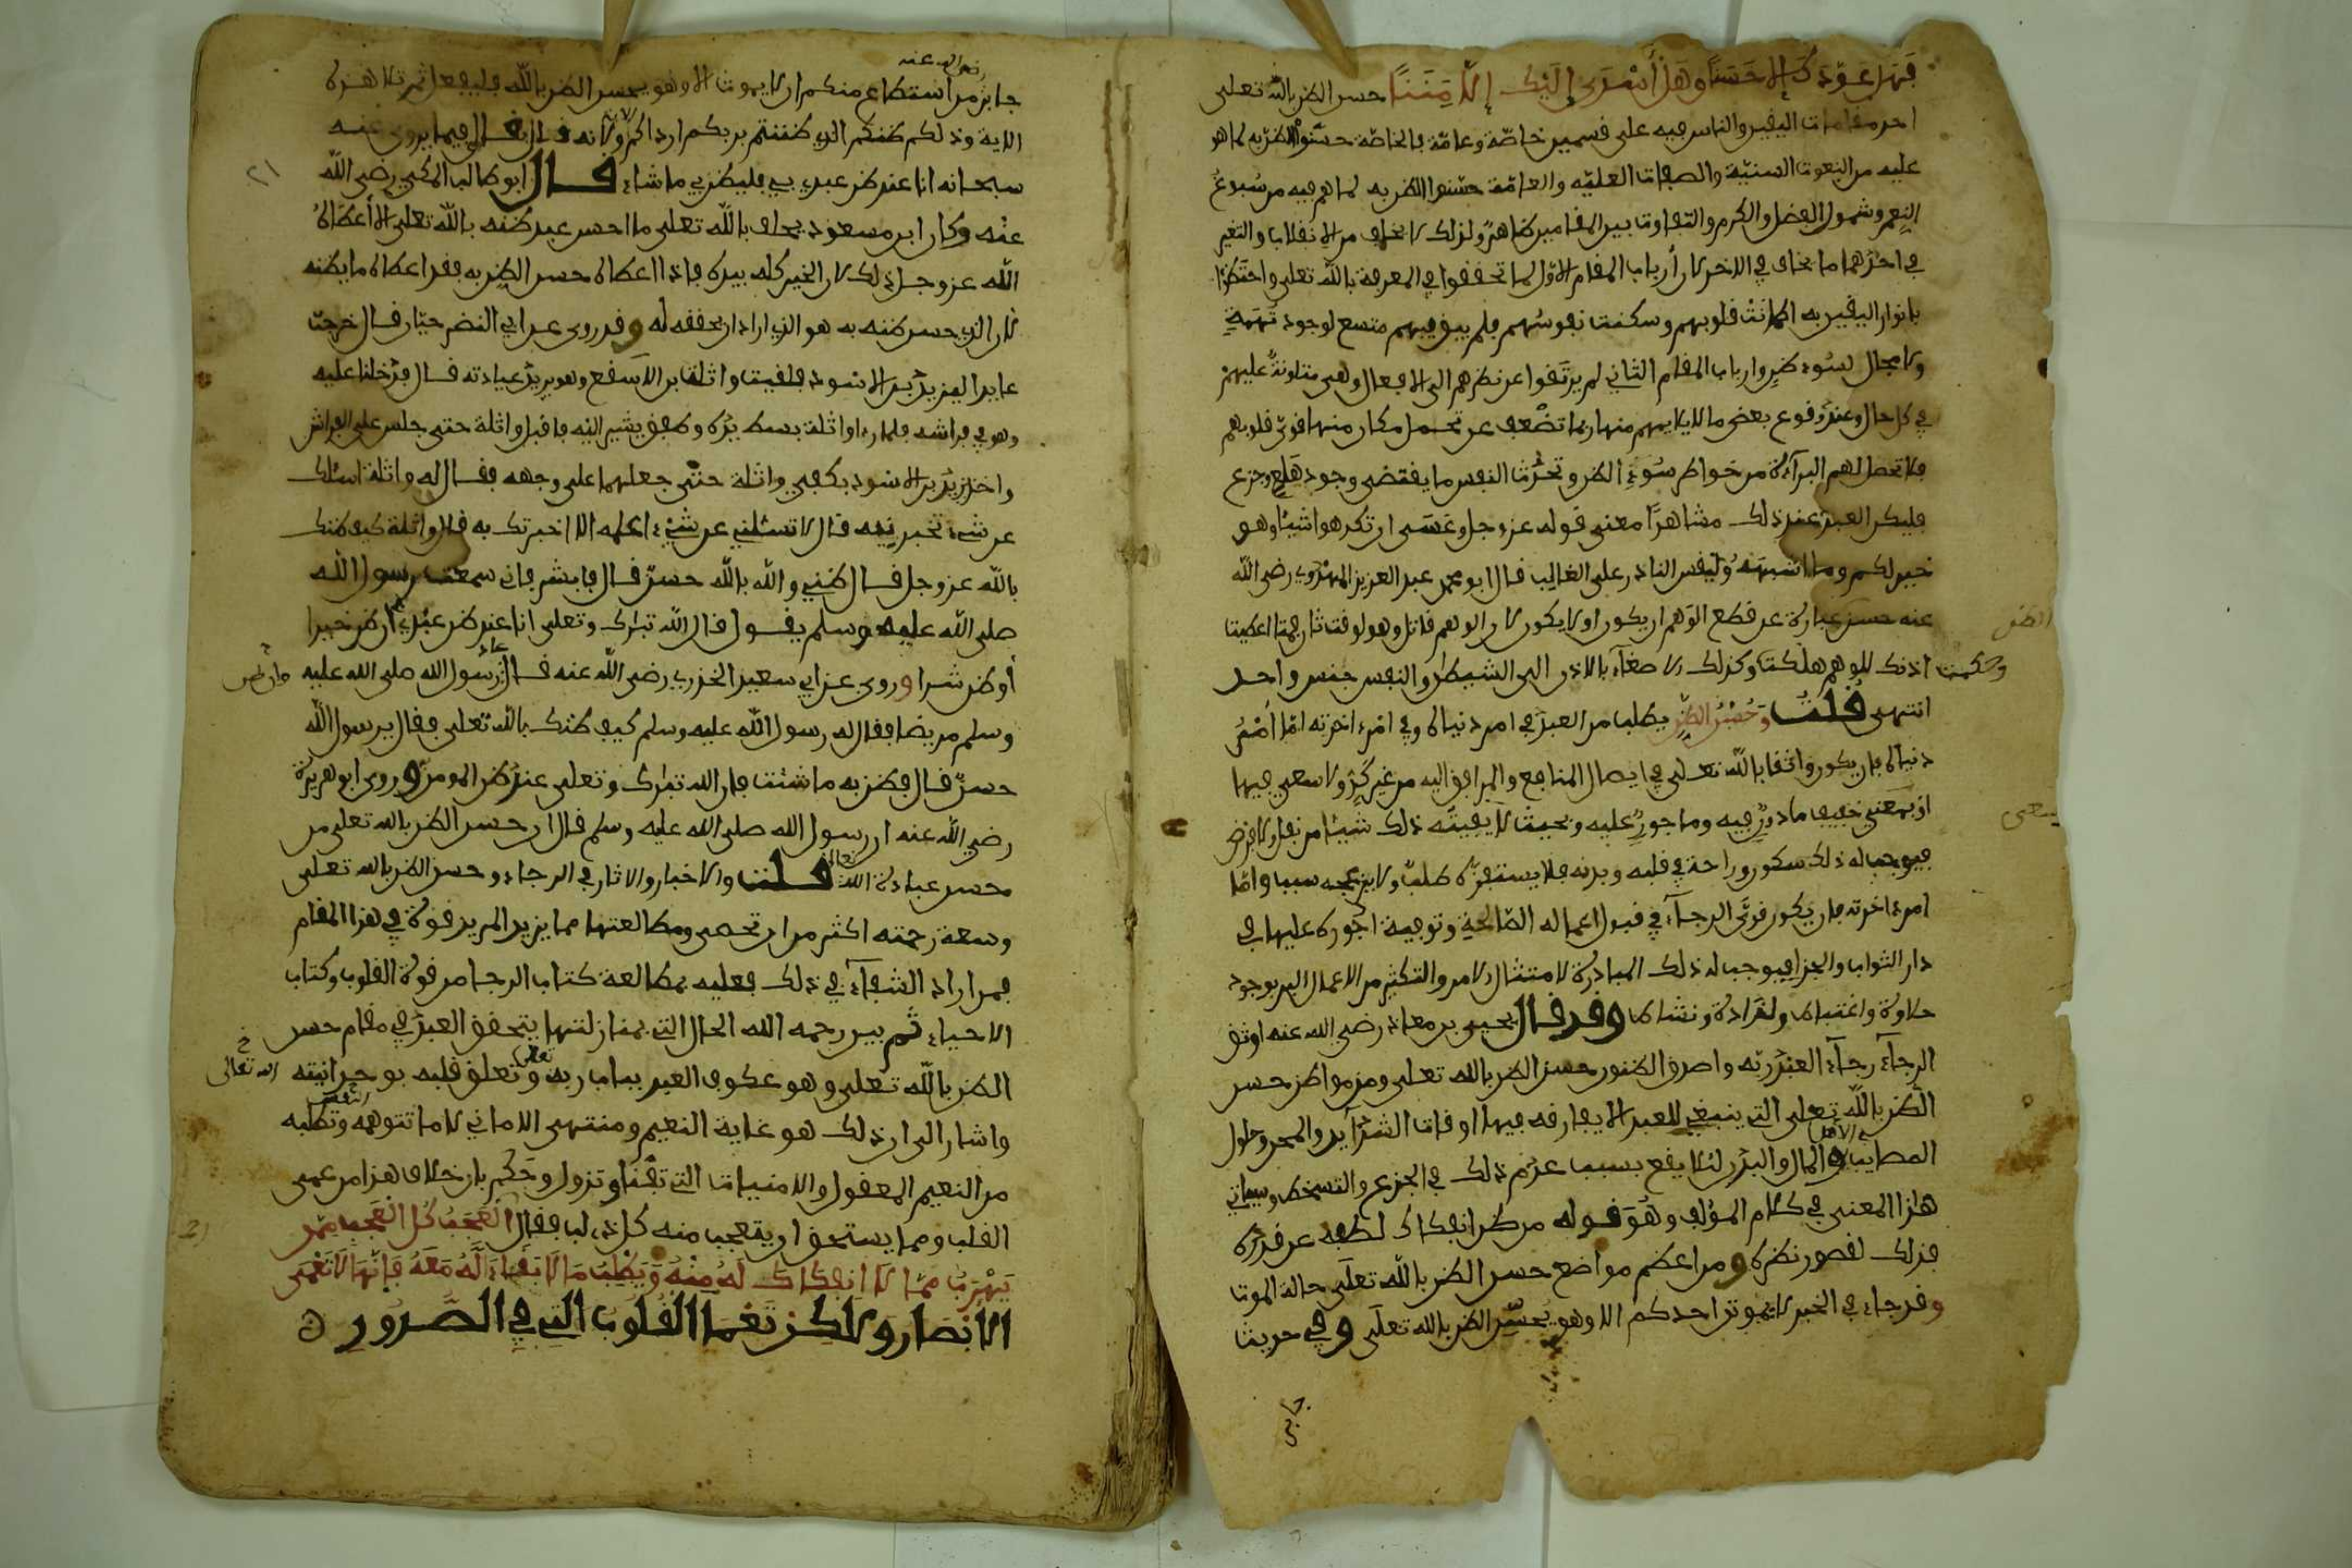 فهل عودك إلا حسنا وهل أسدى إليك إلا مننا حسن الظن بالله تعلى
احد مقامات اليقين والناس فيه على قسمين خاصة وعامة فالخاصة حسنوا الظن به لما هو
عليه من النعوت السنية والصفات العلية والعامة حسنوا الظن به لما هم فيه من سبوغ
النعم وشمول الفضل والكرم والتفاوت بين المقامين ظاهر ولذلك لا يخاف من الانقلاب والتغير
في احدهما ما يخاف في الاخر لان أرباب المقام الاول لما تحققوا في المعرفة بالله تعلى واحتظوا
بانوار اليقين به اطمانت قلوبهم وسكنت نفوسهم فلم يبق فيهم متسع لوجود تهمة
ولا مجال لسوء ظن وارباب المقام الثاني لم يرتقوا عن نظرهم الى الافعال وهي متلونة عليهم
في كل حال وعند وقوع بعض ما لا يلايمهم منها ربما تضعف عن تحمل مكار منها قوى قلوبهم
فلا تحصل لهم البرآءة من خواطر سوء الظن وتحدث النفس ما يقتضي وجود هلع وجزع
فليكن العبد عند ذلك مشاهدا معنى قوله عز وجل وعسى ان تكرهوا شيئا وهو
خير لكم وما اشبهه وليقس النادر على الغالب قال ابو محمد عبد العزيز المهدوي رضي الله
عنه حسن الظن عبارة عن قطع الوهم ان يكون او لا يكون لان الوهم قاتل وهو لوقت ثان فمتا اعطيت
وحكمت اذنك للوهم هلكت وكذلك الاصغاء بالاذن الى الشيطان والنفس جنس واحد
انتهى قلت وحسن الظن يطلب من العبد في امر دنياه وفي امر اخرته اما أمر
دنياه فان يكون واثقا بالله تعلى في ايصال المنافع والمرافق اليه من غير كد ولا سعي فيها
او بسعي خفيف ماذون فيه وماجور عليه وبحيث لا يفيته ذلك شيئا من نفل ولا فرض
فيوجب له ذلك سكون وراحة في قلبه وبدنه فلا يستفزه طلب ولا يزعجه سبب واما
امر اخرته فان يكون قوي الرجآء في قبول اعماله الصالحة وتوفية اجوره عليها في
دار الثواب والجزا فيوجب له ذلك المبادرة لامتثال الامر والتكثير من الاعمال البر بوجود
حلاوة واغتباط ولذاذة ونشاط وقد قال يحيى بن معاذ رضي الله عنه اوثق
الرجآء رجآء العبد ربه واصدق الظنون حسن الظن بالله تعلى ومن مواطن حسن
الظن بالله تعلى التي ينبغي للعبد الا يفارقه فيها اوقات الشدآيد والمحن وحلول
المصايب في الاهل والمال والبدن لئلا يقع بسبب عدم ذلك في الجزع والتسخط وسياتي
هاذا المعنى في كلام المؤلف وهو قوله من ظن انفكاك لطفه عن قدره
فذلك لقصور نظره ومن اعظم مواضع حسن الظن بالله تعلى حالة الموت
وقد جاء في الخبر لا يموتن احدكم الا وهو يحسن الظن بالله تعلى وفي حديث
جابر
جابر رضي الله عنه من استطاع منكم ان لا يموت الا وهو يحسن الظن بالله فليفعل ثم تلا هذه
الاية وذلكم ظنكم الذي ظننتم بربكم ارداكم ولانه قال فيما يروى عنه
سبحانه انا عند ظن عبدي بي فليظن بي ما شاء قال ابو طالب المكي رضي الله
عنه وكان ابن مسعود يحلف بالله تعلى ما احسن عبد ظنه بالله تعلى الا أعطاه
الله عز وجل ذلك لان الخير كله بيده فاذا اعطاه حسن الظن به فقد اعطاه ما يظنه
لان الذي حسن ظنه به هو الذي اراد ان يحققه له وقد روى عن ابي النضر حيان قال خرجت
عايدا ليزيد بن الاسود فلقيت واثلة بن الاسقع وهو يريد عيادته قال فدخلنا عليه
وهو في فراشه فلما رءا واثلة بسط يده وطفق يشير اليه فاقبل واثلة حتى جلس على الفراش
واخذ يزيد بن الاسود بكفي واثلة حتى جعلهما على وجهه فقال له واثلة اسئلك
عن شيء تخبرنيه قال لا تسئلني عن شيء اعلمه الا اخبرتك به قال واثلة كيف ظنك
بالله عز وجل قال ظني والله بالله حسن قال فابشر فاني سمعت رسول الله
صلى الله عليه وسلم يقول قال الله تبارك وتعلى انا عند ظن عبدي ان ظن خيرا
أو ظن شرا وروى عن ابي سعيد الخدري رضي الله عنه قال عاد رسول الله صلى الله عليه
وسلم مريضا فقال له رسول الله عليه وسلم كيف ظنك بالله تعلى فقال يرسول الله
حسن قال فظن به ما شئت فان الله تبارك وتعلى عند ظن المومن وروى ابو هريرة
رضي الله عنه ان رسول الله صلى الله عليه وسلم قال ان حسن الظن بالله تعلى من
حسن عبادة الله تعالى قلت والاخبار والاثار في الرجاء وحسن الظن بالله تعلى
وسعة رحمته اكثر من ان تحصى ومطالعتها مما يزيد المريد قوة في هذا المقام
فمن اراد الشفآء في ذلك فعليه بمطالعة كتاب الرجا من قوة القلوب وكتاب
الاحياء ثم بين رحمه الله الحال التي بمنازلتها يتحقق العبد في مقام حسن
الظن بالله تعلى وهو عكوف العبد بباب ربه تعلى وتعلق قلبه بوحدانيته
واشار الى ان ذلك هو غاية النعيم ومنتهى الاماني لا ما تتوهمه وتطلبه النفس
من النعيم المعقول والامنيات التي تفنا وتزول وحكم بان خلاف هذا من عمى
القلب ومما يستحق ان يتعجب منه كل ذي لب فقال العجب كل العجب ممن
يهرب مما لا انفكاك له منه ويطلب ما لا بقاء له معه فإنها لا تعمى
الابصار ولاكن تعمى القلوب التي في الصدور